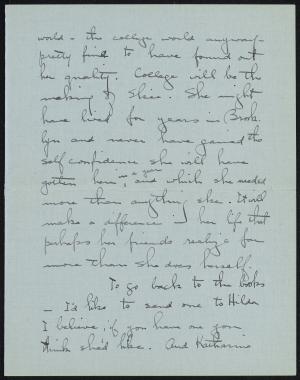 world - the college world anyway -
pretty fine to have found out
her quality. College will be the
making of Skee. She might
have lived for years in Brook
lyn and never have gained the
self confidence she will have
gotten here, in a year, and which she needed
more than anything else. It will
make a difference in her life that
perhaps her friends realize far
more than she does herself.
To go back to the books
- I'd like to send one to Hilda
I believe, if you have one you
think she'd like. And Katharine